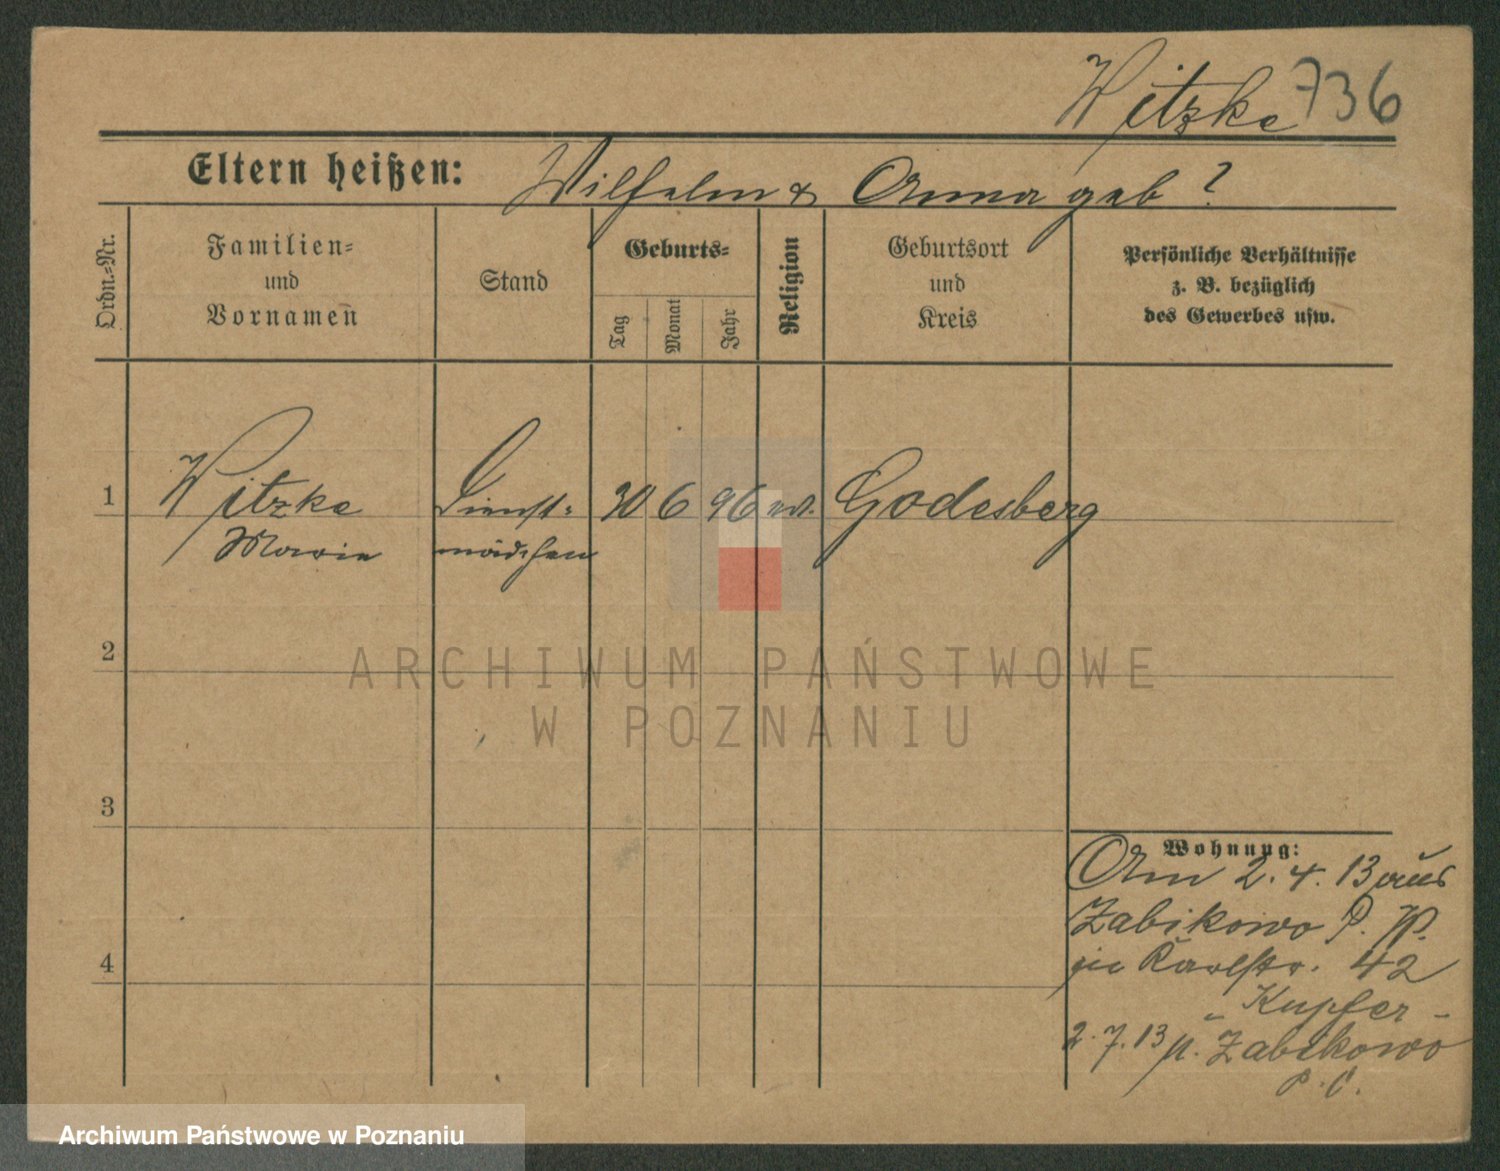 Witzke 736
Eltern heißen: Wilhelm & Anna geb ?
Ordn.-Nr.
Familien-
und
Vornamen
Stand
Geburts-
Tag
Monat
Jahr
Religion
Geburtsort
und
Kreis
Persönliche Verhältnisse
z. B. bezüglich
des Gewerbes usw.
1
Witzke
Marie
Dienst-
mädchen
30 6 96 ev. Godesberg
2
3
4
Wohnung:
Am 2. 4. 13 aus
Zabikowo P. W.
zu Karlstr. 42
Kupfer -
2. 7. 13 n. Zabikowo
ARCHIWUM PAŃSTWOWE
W POZNANIU
Archiwum Państwowe w Poznaniu